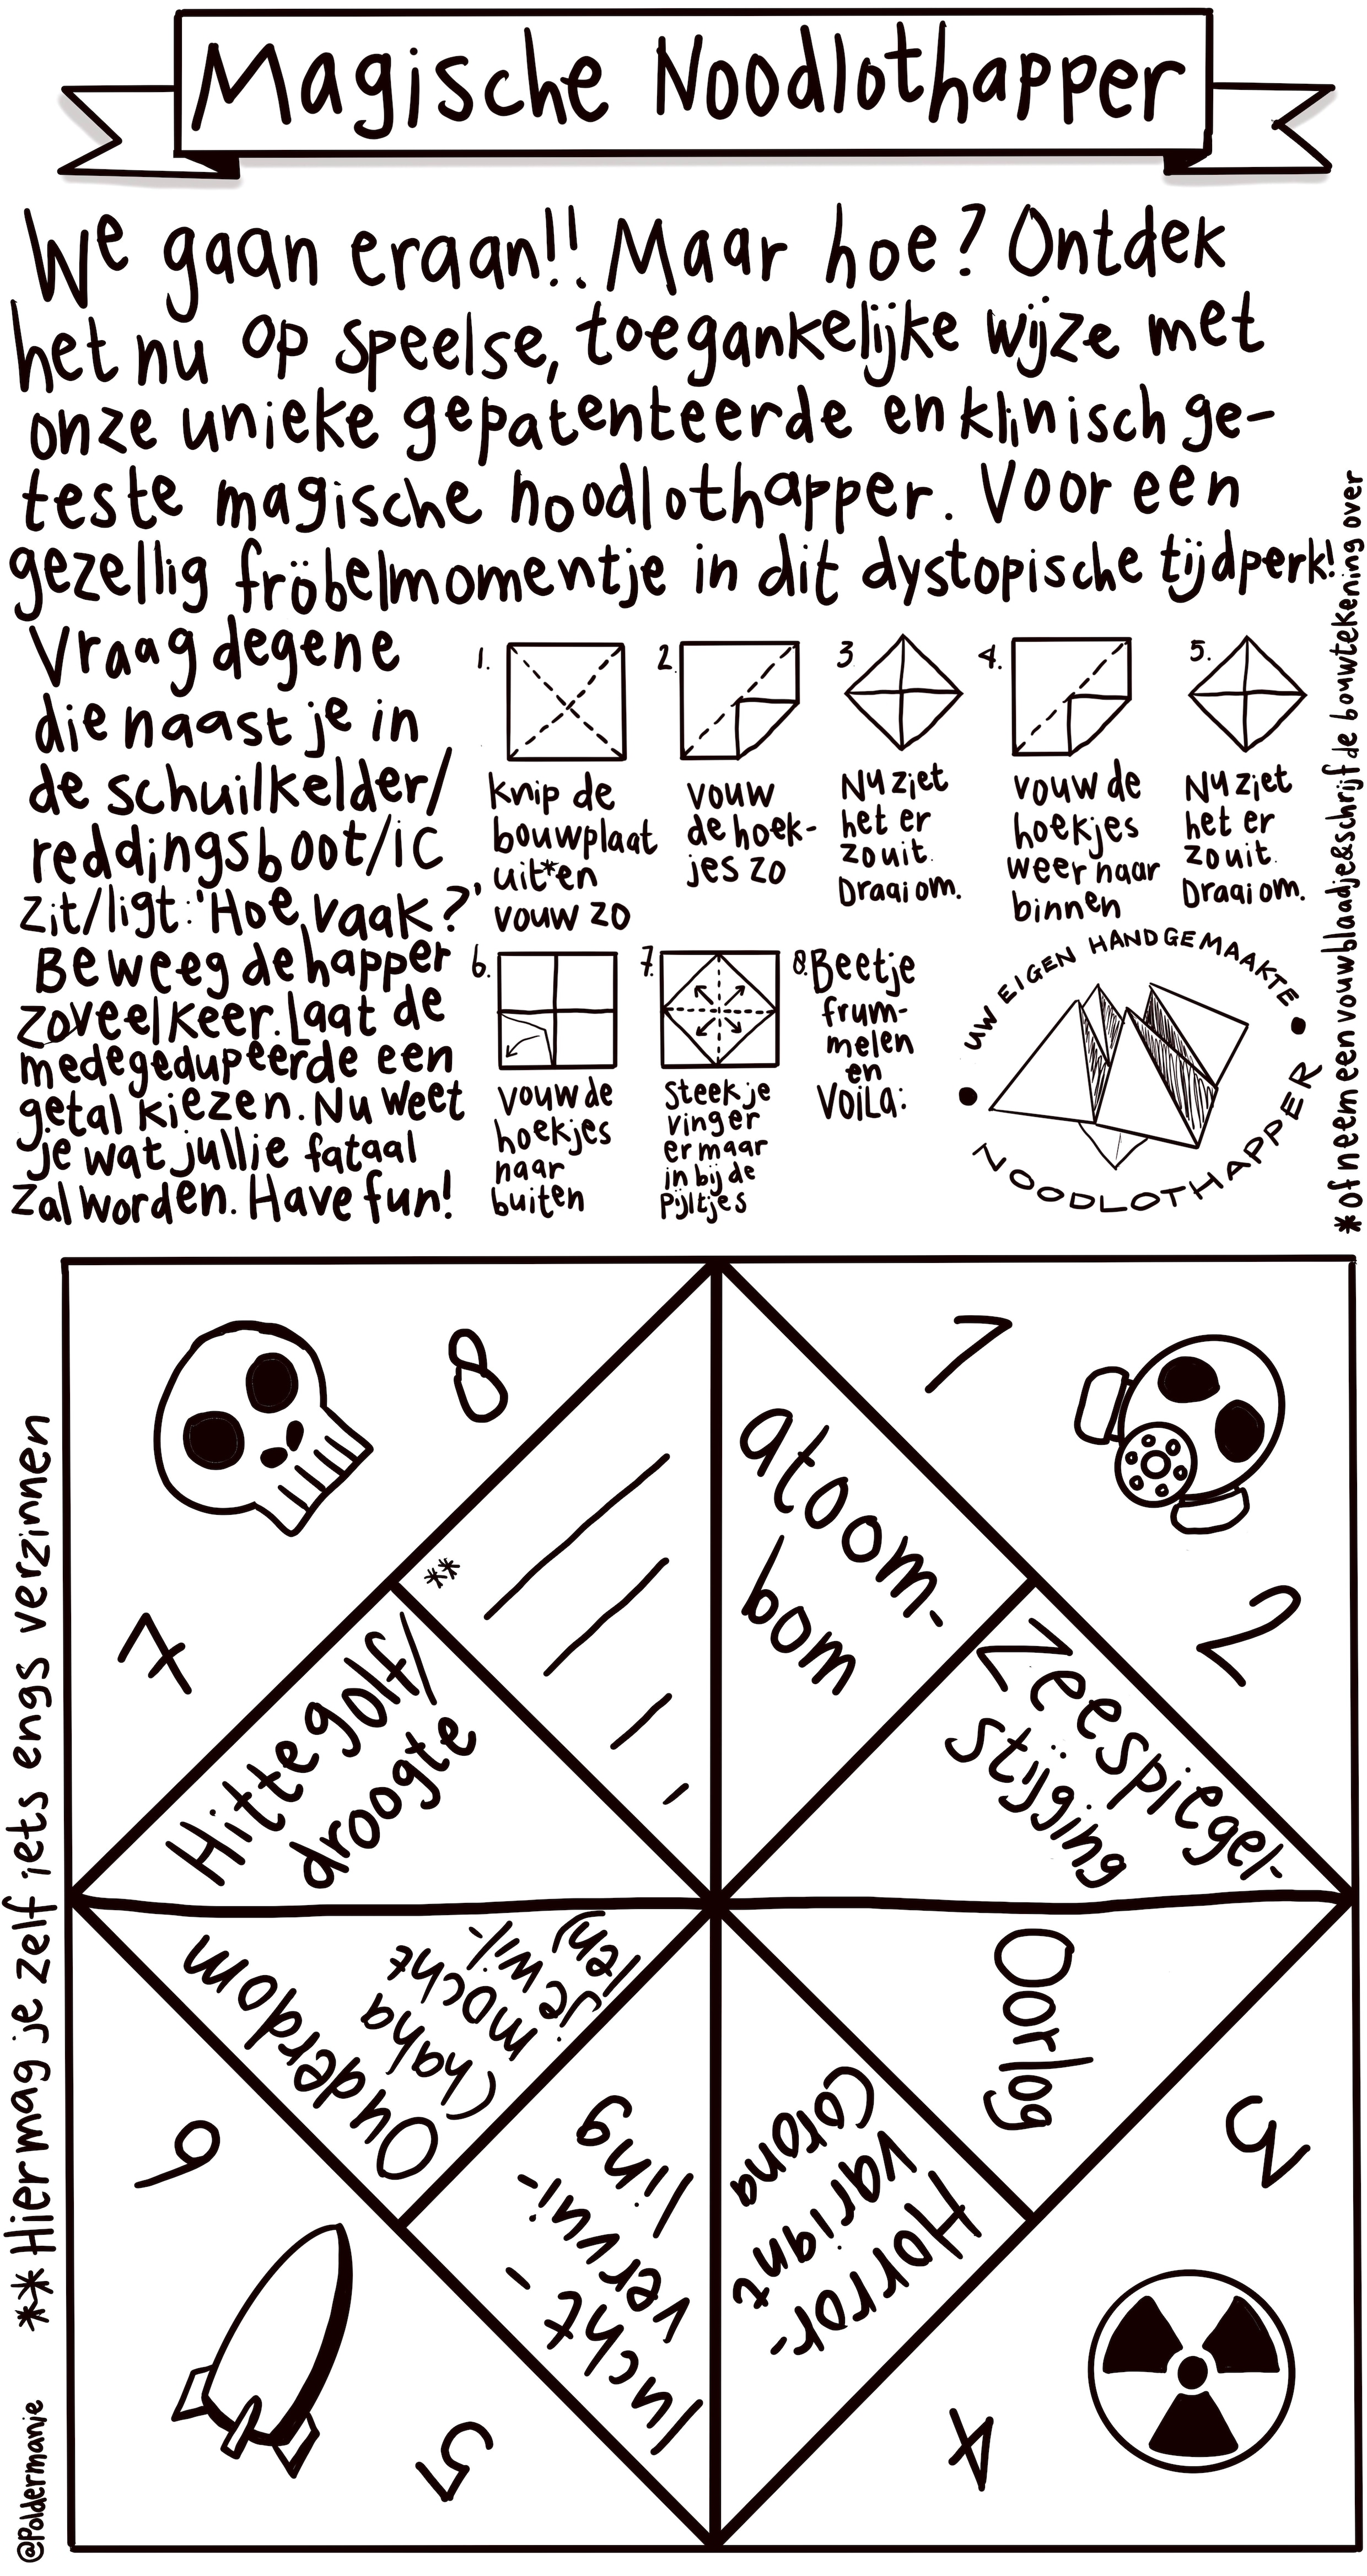 Magische Noodlothapper
We gaan eraan!! Maar hoe? Ontdek
het nu op speelse, toegankelijke wijze met
onze unieke gepatenteerde en klinisch ge-
teste magische noodlothapper. Voor een
gezellig fröbelmomentje in dit dystopische tijdperk!
Vraag degene
die naast je in
de schuilkelder/
reddingsboot/ic
zit/ligt: 'Hoe vaak?'
Beweeg de happer
zoveel keer. Laat de
medegedupeerde een
getal kiezen. Nu weet
je wat jullie fataal
zal worden. Have fun!
1.
knip de
bouwplaat
uit* en
vouw zo
2.
vouw
de hoek-
jes zo
3
Nu ziet
het er
zo uit.
Draai om.
4.
vouw de
hoekjes
weer naar
binnen
5.
Nu ziet
het er
zo uit.
Draai om.
6.
vouw de
hoekjes
naar
buiten
7.
Steek je
vinger
er maar
in bij de
pijltjes
8. Beetje
frum-
melen
en
voila:
UW EIGEN HANDGEMAAKTE
NOODLOTHAPPER
*of neem een vouwblaadje & schrijf de bouwtekening over
8
1
atoom-
bom
**
7
2
Hittegolf/
droogte
Zeespiegel-
stijging
Ouderdom
(haha
je mocht
je wil-
len)
Oorlog
6
3
lucht-
vervui-
ling
Horror-
variant
corona
5
4
**Hier mag je zelf iets engs verzinnen
@Poldermanje